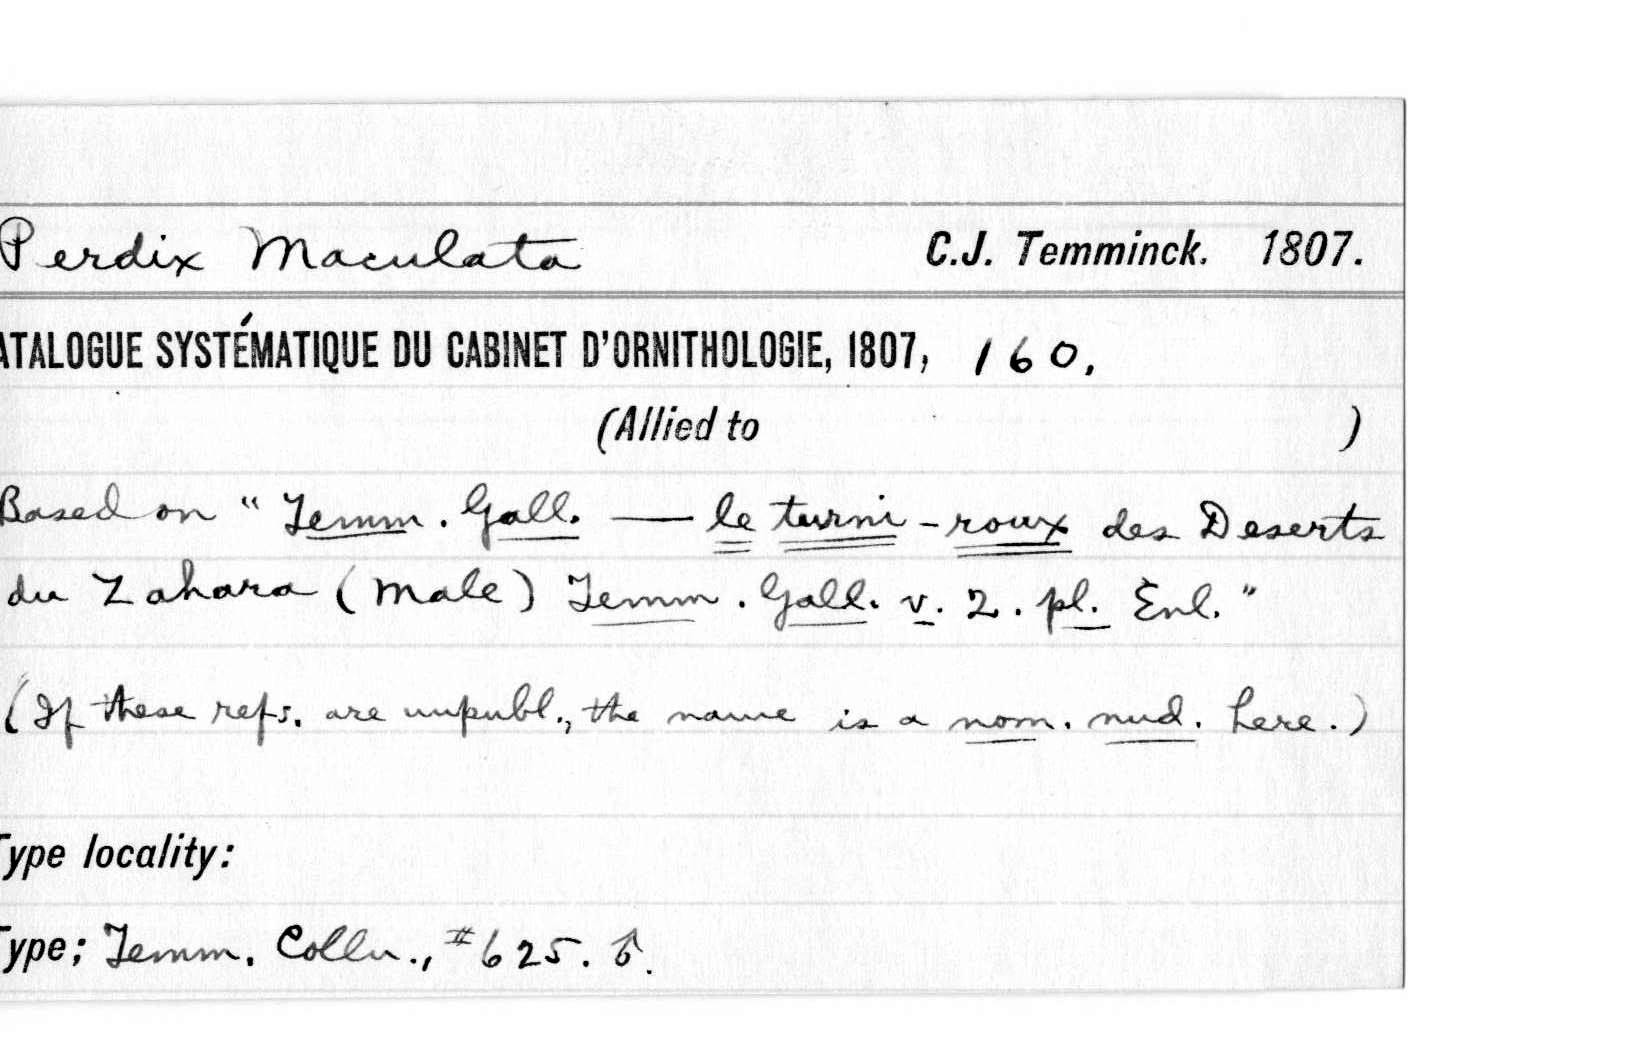 Perdix Maculata C.J. Temminck. 1807.
ATALOGUE SYSTÉMATIQUE DU CABINET D'ORNITHOLOGIE, 1807, 160.
(Allied to )
Based on "Temm. Gall. — le turni-roux des Deserts
du Zahara (Male) Temm. Gall. v. 2. pl. Enl."
(If these refs. are unpubl., the name is a nom. nud. here.)
Type locality:
Type; Temm. Colln., #625. ♂.